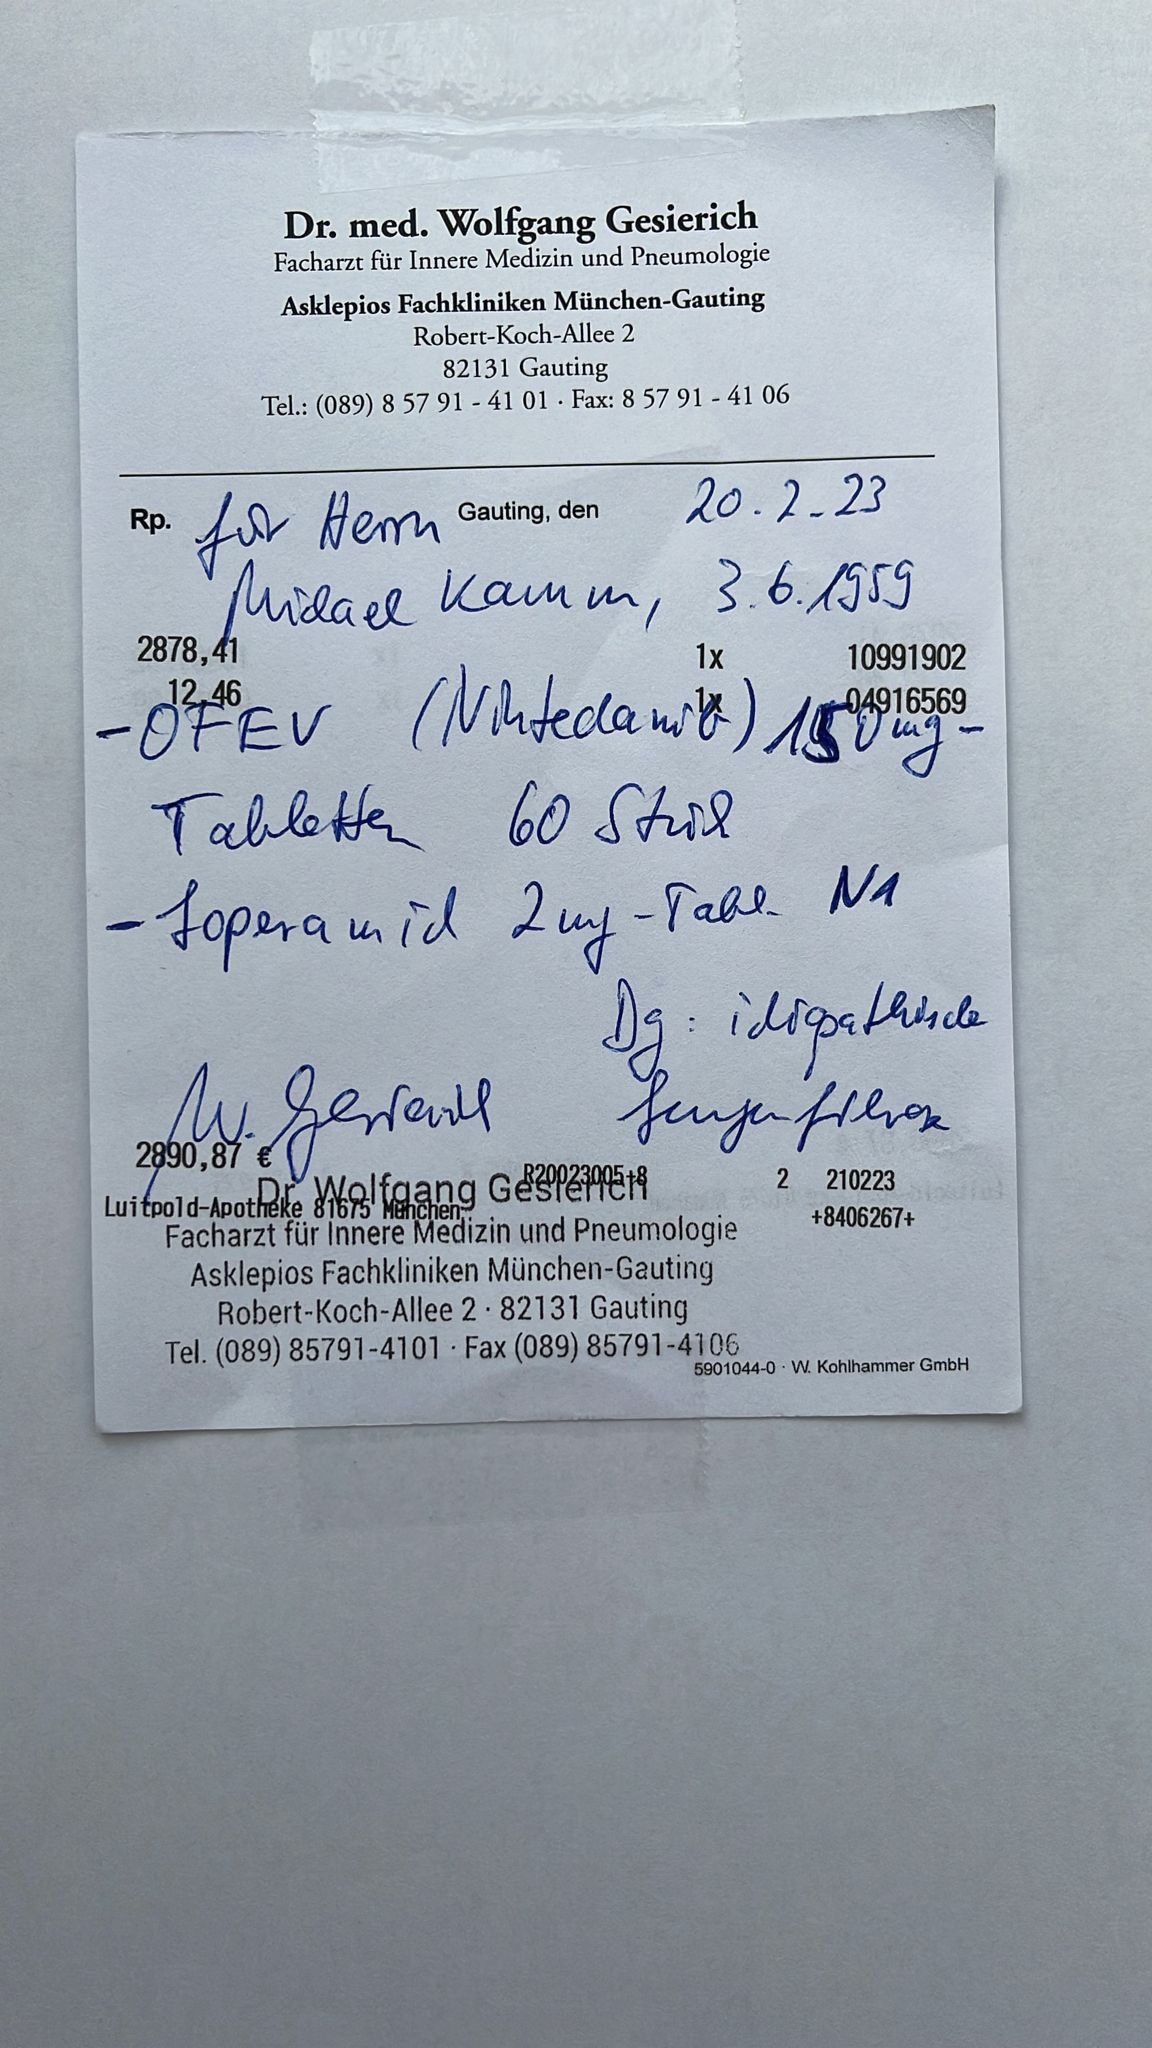 Dr. med. Wolfgang Gesierich
Facharzt für Innere Medizin und Pneumologie
Asklepios Fachkliniken München-Gauting
Robert-Koch-Allee 2
82131 Gauting
Tel.: (089) 8 57 91 - 41 01 · Fax: 8 57 91 - 41 06
Rp. für Herrn Gauting, den 20.2.23
Michael Kamm, 3.6.1959
2878,41 1x 10991902
12,46 1x 04916569
- OFEV (Nintedanib) 150mg-
Tabletten 60 Stück
- Loperamid 2mg-Tabl. N1
Dg: idiopathische
W. Gesierich Lungenfibrose
2890,87 € R20023005+8 2 210223
Luitpold-Apotheke 81675 München +8406267+
Dr. Wolfgang Gesierich
Facharzt für Innere Medizin und Pneumologie
Asklepios Fachkliniken München-Gauting
Robert-Koch-Allee 2 · 82131 Gauting
Tel. (089) 85791-4101 · Fax (089) 85791-4106
5901044-0 · W. Kohlhammer GmbH